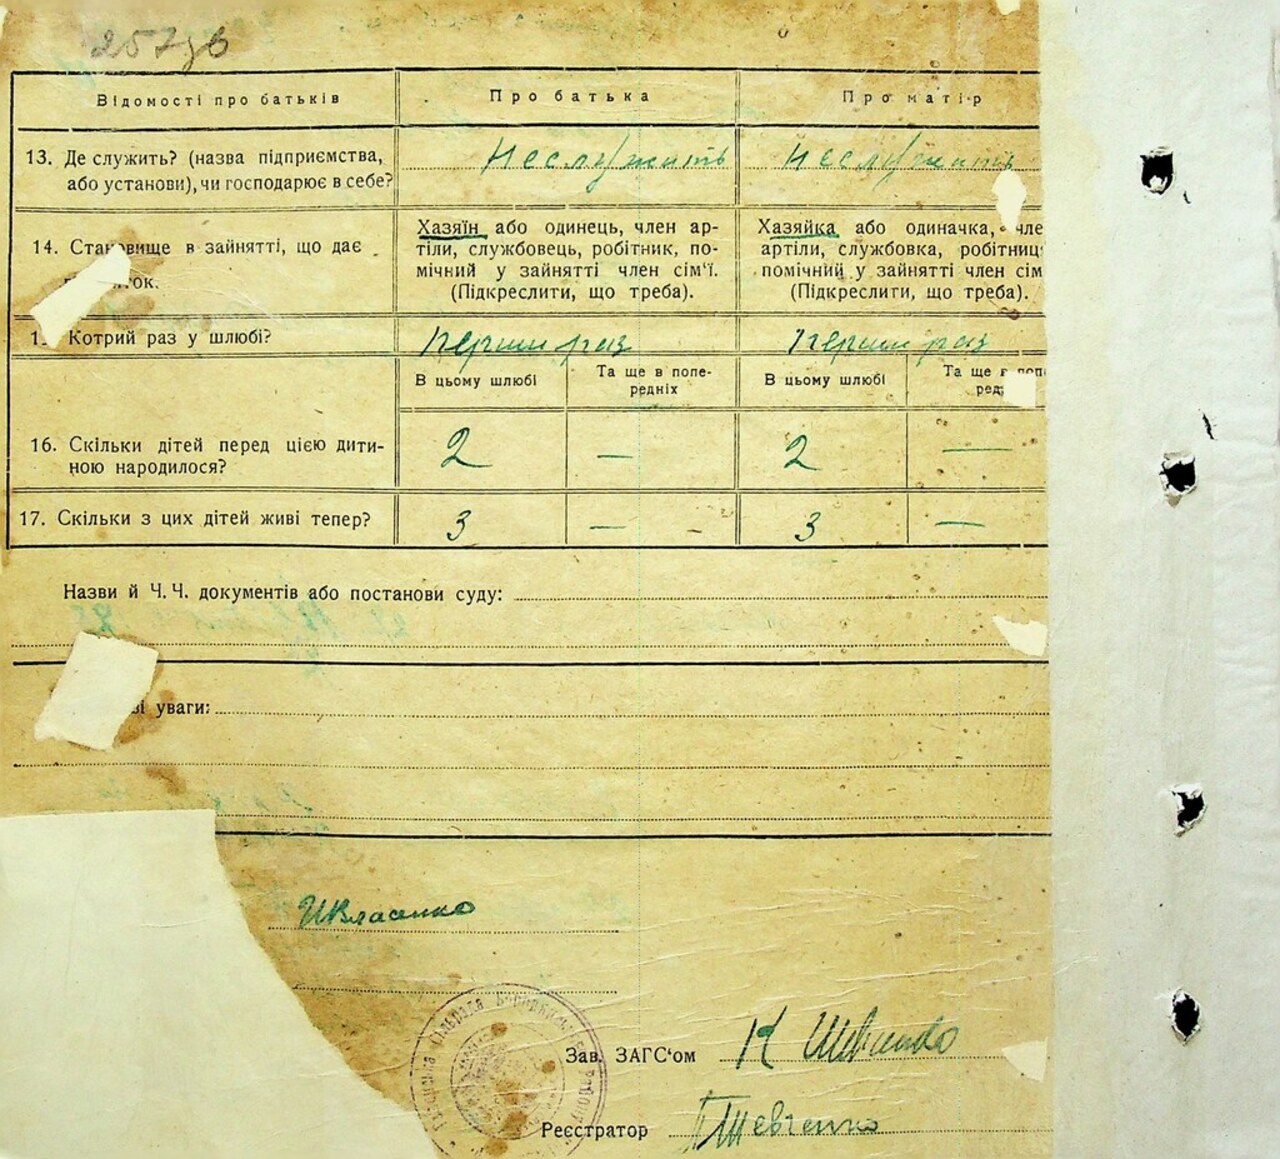 257зв
Відомості про батьків Про батька Про матір
13. Де служить? (назва підприємства, або установи), чи господарює в себе? неслужить неслужить
14. Становище в зайнятті, що дає
ток.
Хазяїн або одинець, член ар-
тілі, службовець, робітник, по-
мічний у зайнятті член сім'ї.
(Підкреслити, що треба).
Хазяйка або одиначка, чле
артілі, службовка, робітниц
помічний у зайнятті член сім
(Підкреслити, що треба).
1 Котрий раз у шлюбі? перший раз перший раз
В цьому шлюбі
Та ще в попе-
редніх
В цьому шлюбі
Та ще в поп
ред
16. Скільки дітей перед цією дити-
ною народилося?
2 — 2 —
17. Скільки з цих дітей живі тепер? 3 — 3 —
Назви й Ч. Ч. документів або постанови суду:
ві уваги:
ИВласенко
Зав. ЗАГС'ом К Шевченко
Реєстратор ПШевченко